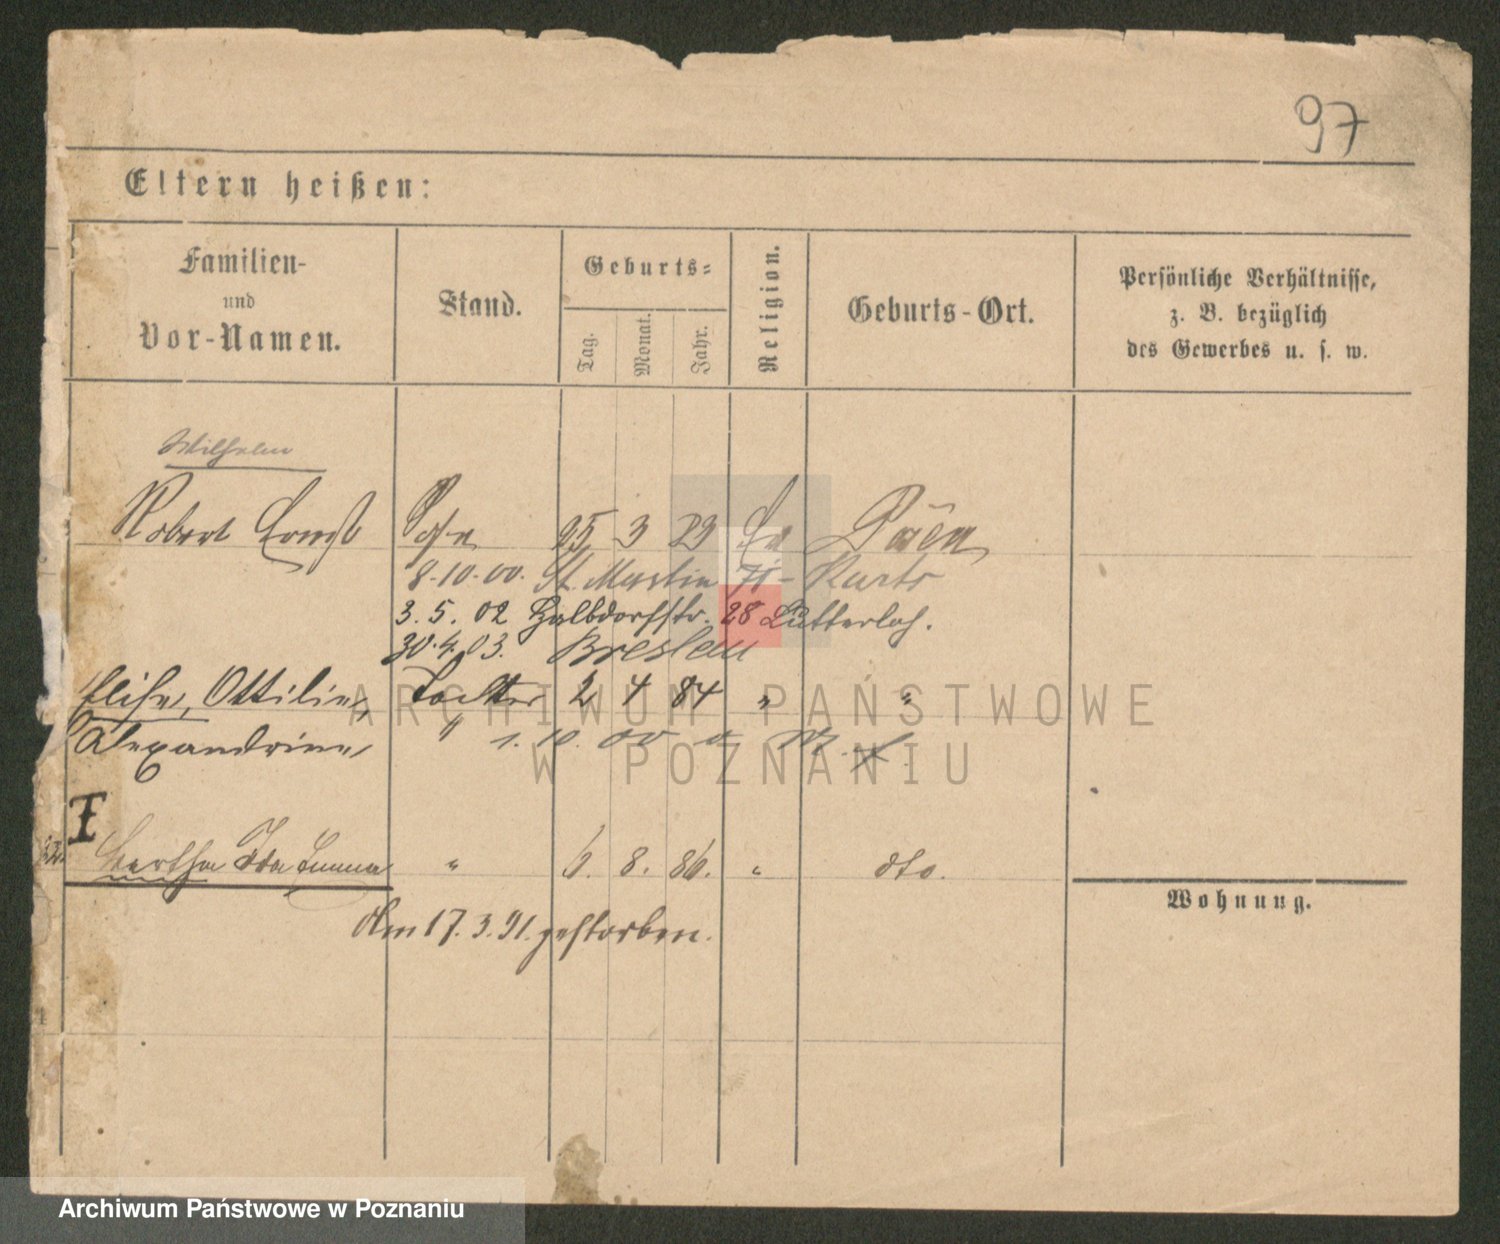 97
Eltern heißen:
Familien- und Vor-Namen.
Stand.
Geburts-
Tag.
Monat.
Jahr.
Religion.
Geburts-Ort.
Persönliche Verhältnisse,
z. B. bezüglich
des Gewerbes u. s. w.
Wilhelm
Robert Ernst Sohn 25 3 23 Ev Posen
8.10.00. St. Martin 71 - Kurts
3. 5. 02 Halbdorfstr. 28 Lütterloh.
30.4.03. Breslau
Elise, Ottilie, Tochter 2 4 84 " "
Alexandrine, " 1. 10. 00
Bertha Ida Emma " 6. 8. 86. " dto.
Am 17. 3. 91. gestorben.
Wohnung.
ARCHIWUM PAŃSTWOWE
W POZNANIU
Archiwum Państwowe w Poznaniu